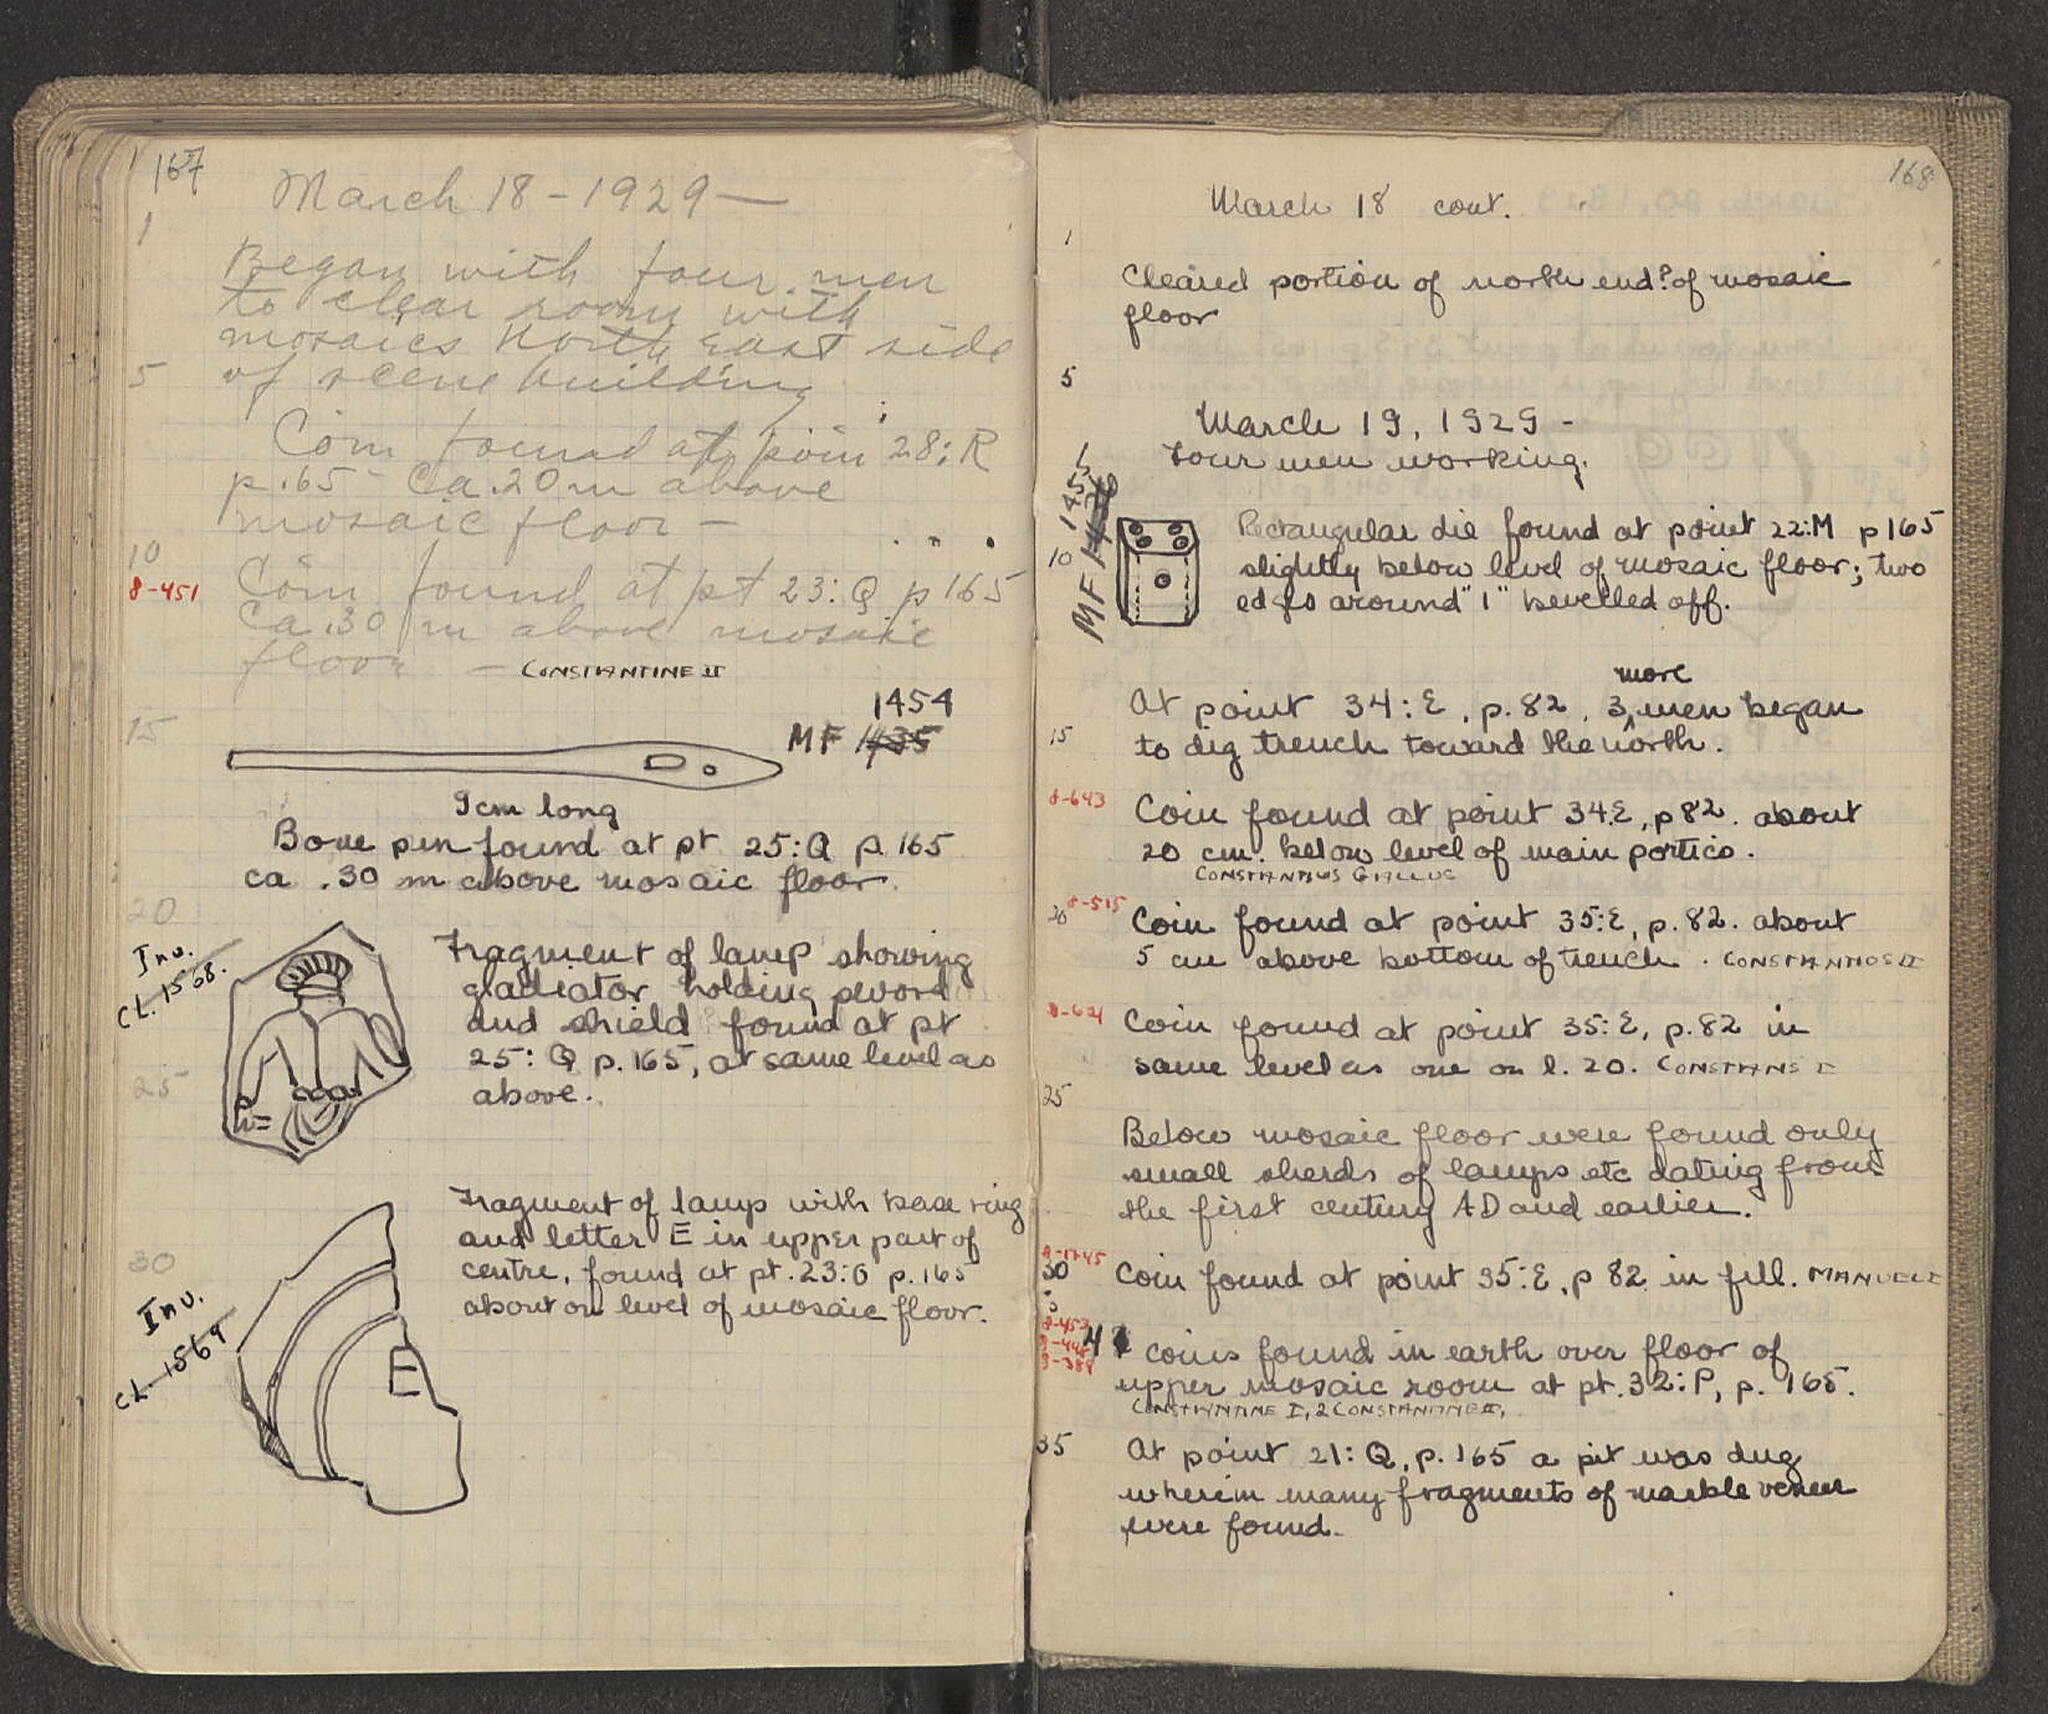 167
March 18 - 1929 —
1
Began with four men
to clear room with
mosaics North East side
5 of scene building
Coin found at poin 28:R
p. 65 - Ca .20 m above
mosaic floor —
10
8-451 Coin found at pt 23:Q p 165
Ca .30 m above mosaic
floor — CONSTANTINE II
1454
15 MF 1435
9cm long
Bone pen found at pt 25:Q p. 165
ca .30 m above mosaic floor.
20
Inv.
CL. 1568.
Fragment of lamp showing
gladiator holding sword
and shield found at pt
25: Q p. 165, at same level as
25 above.
Fragment of lamp with base ring
and letter E in upper part of
30 centre, found at pt. 23:O p. 165
about on level of mosaic floor.
Inv.
CL. 1569
E
168
March 18 cont.
1
Cleared portion of north end? of mosaic
floor
5
March 19, 1929 -
Four men working.
1455
MF
Rectangular die found at point 22:M p 165
10 slightly below level of mosaic floor; two
edges around "1" bevelled off.
more
At point 34:E, p. 82, 3 men began
15 to dig trench toward the north.
8-643 Coin found at point 34:E, p 82. about
20 cm. below level of main portico.
CONSTANTIUS GALLUS
20 8-515 Coin found at point 35:E, p. 82. about
5 cm above bottom of trench. CONSTANTIUS II
8-624 Coin found at point 35:E, p. 82 in
same level as one on l. 20. CONSTANS I
25
Below mosaic floor were found only
small sherds of lamps etc dating from
the first century AD and earlier.
8-1745
30 Coin found at point 35:E, p 82 in fill. MANUEL I
8-453
8-448
8-389
4 coins found in earth over floor of
upper mosaic room at pt. 32:P, p. 165.
CONSTANTINE I, 2 CONSTANTINE II,
35 At point 21:Q, p. 165 a pit was dug
wherein many fragments of marble veneer
were found.